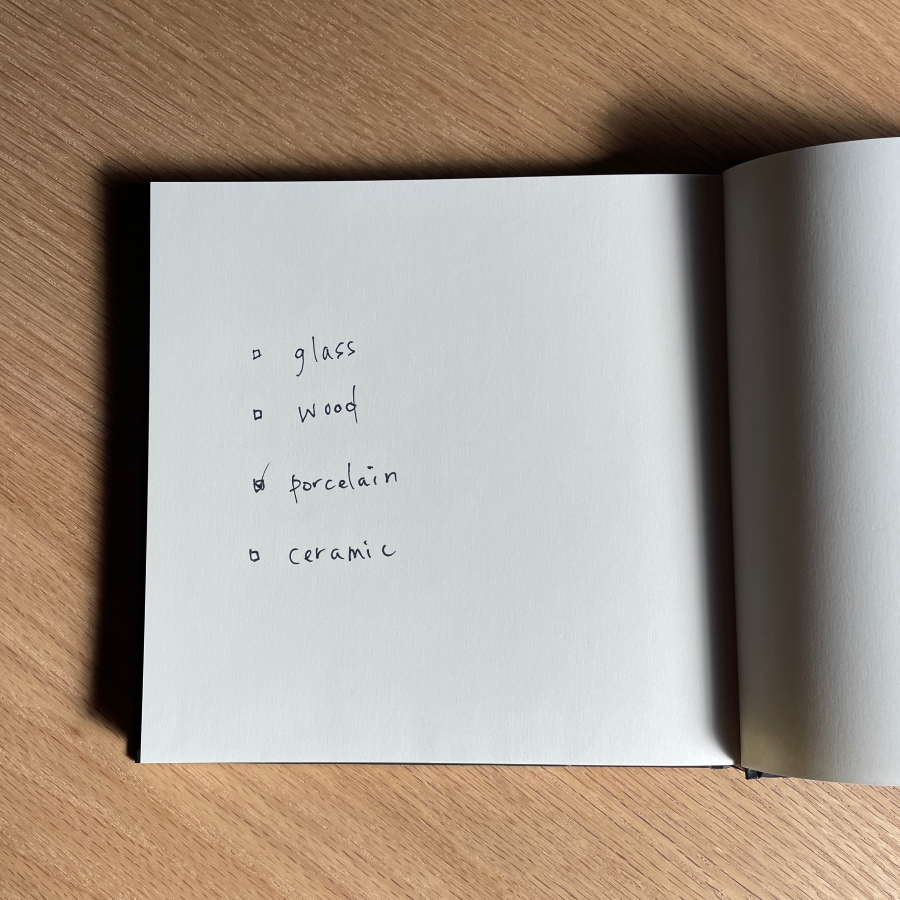 ☐ glass
☐ wood
☑ porcelain
☐ ceramic